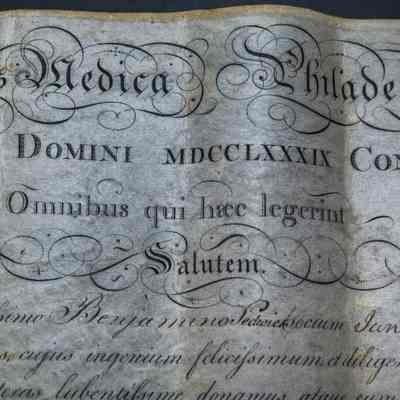 s Medica Philade
DOMINI MDCCLXXXIX CON
Omnibus qui hæc legerint
Salutem.
simo Benjamino Pedrick socium Jun
s, cujus ingenium felicissimum et diligen
teras lubentissime donamus atque eum